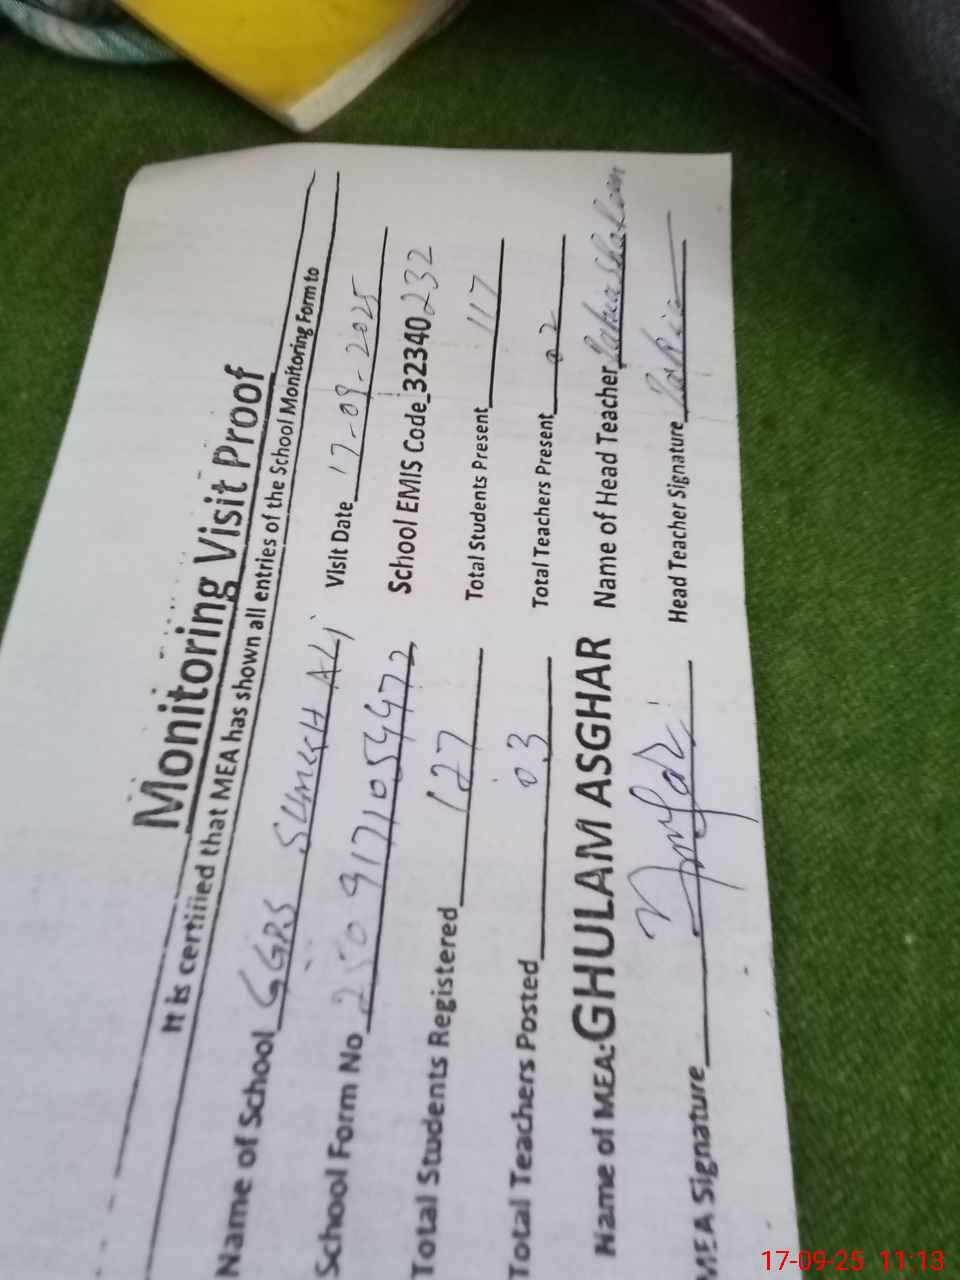 Monitoring Visit Proof
It is certified that MEA has shown all entries of the School Monitoring Form to
Name of School GGPS SUMESH ALI Visit Date 17-09-2025
School Form No 2509171059472 School EMIS Code 32340232
Total Students Registered 127 Total Students Present 117
Total Teachers Posted 03 Total Teachers Present 02
Name of MEA: GHULAM ASGHAR Name of Head Teacher
MEA Signature Head Teacher Signature
17-09-25 11:13